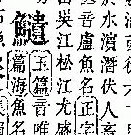 於水濱潛伏人
音盧魚名正字
吳江松江尤盛
玉篇音唯
篇海魚名